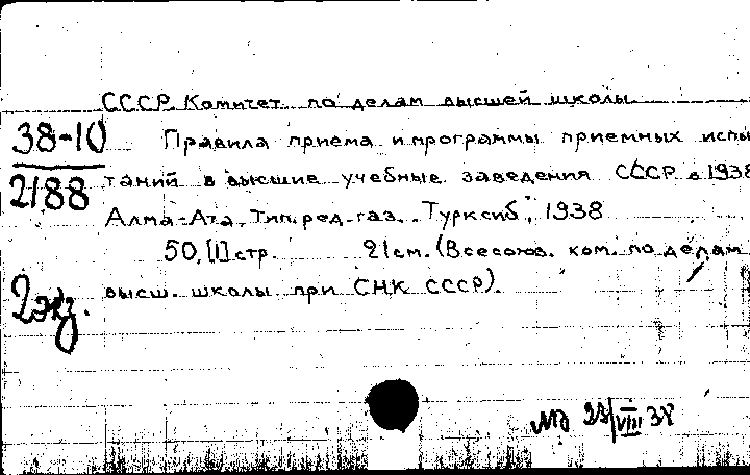 СССР. Комитет по делам высшей школы.
38-10
2188
Правила приема и программы приемных испы
таний в высшие учебные заведения СССР в 1938
Алма-Ата, Тип. ред. газ. "Турксиб", 1938
50, [1] стр. 21 см. (Всесоюз. ком. по делам
высш. школы при СНК СССР).
2 экз.
VIII 38